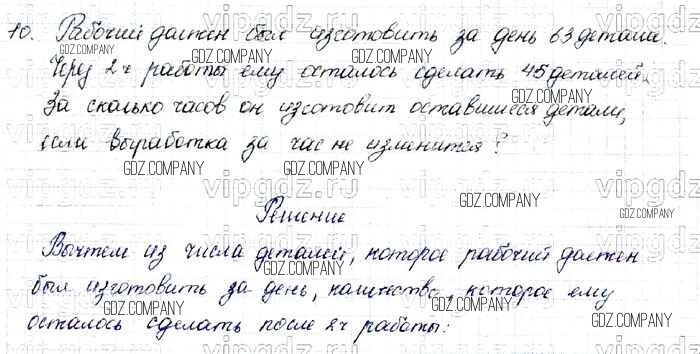 10. Рабочий должен был изготовить за день 63 детали.
Через 2 ч работы ему осталось сделать 45 деталей.
За сколько часов он изготовит оставшиеся детали,
если выработка за час не изменится?
Решение
Вычтем из числа деталей, которое рабочий должен
был изготовить за день, количество, которое ему
осталось сделать после 2 ч работы:
GDZ.COMPANY
vipgdz.ru